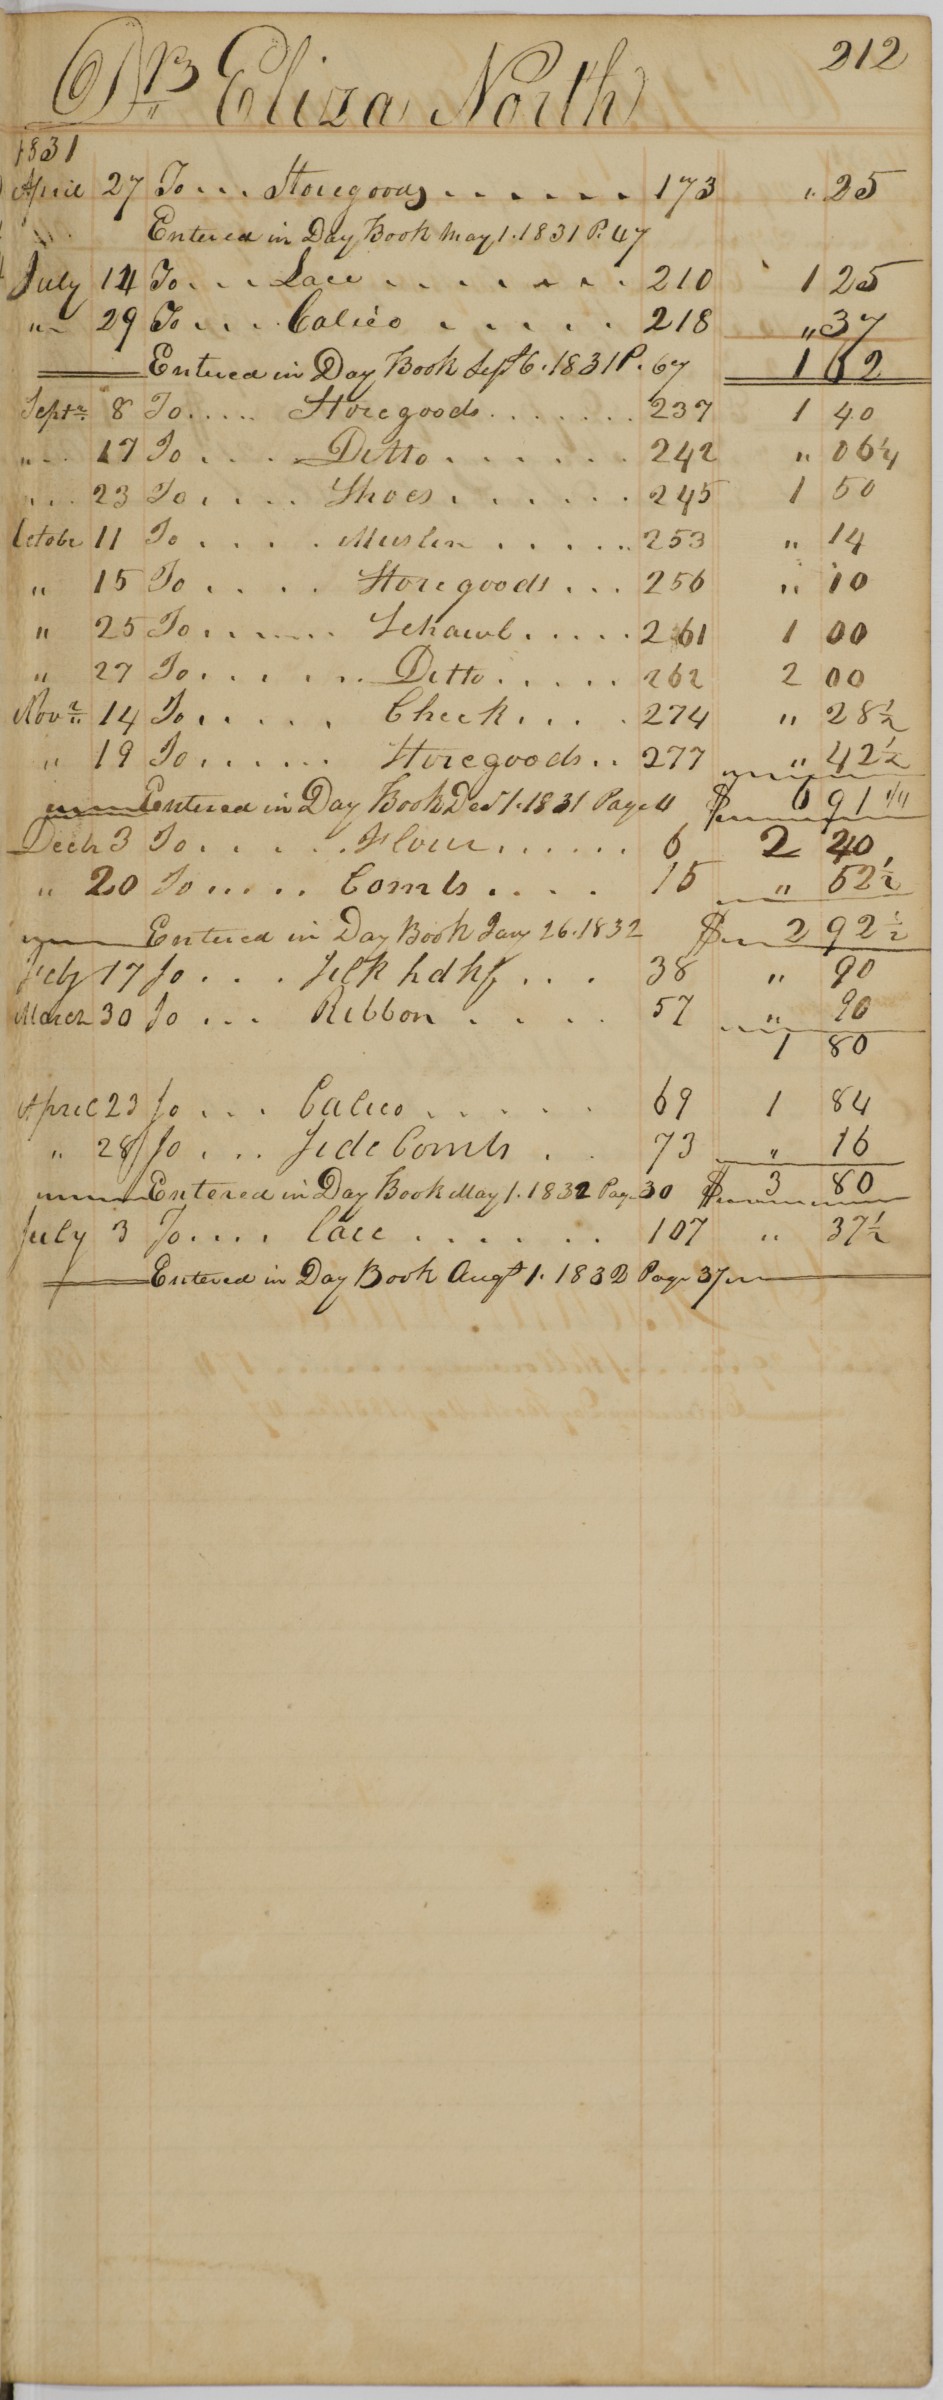 212
Dr Eliza North
1831
April 27 To... Storegoods...... 173 " 25
Entered in Day Book May 1. 1831 P. 47
July 14 To... Lace........ 210 1 25
" 29 To.... Calico ..... 218 " 37
Entered in Day Book Sept 6. 1831 P. 67 1 62
Septr 8 To..... Storegoods....... 237 1 40
" 17 To.... Ditto...... 242 " 06 1/4
" 23 To.... Shoes...... 245 1 50
Octobr 11 To..... Muslin ..... 253 " 14
" 15 To.... Storegoods... 256 " 10
" 25 To...... Schawl..... 261 1 00
" 27 To...... Ditto..... 262 2 00
Novr 14 To..... Check.... 274 " 28 1/2
" 19 To...... Storegoods.. 277 " 42 1/2
Entered in Day Book Dec 1. 1831 Page 4 $ 6 91 1/4
Decr 3 To...... Flour...... 6 2 40
" 20 To..... Combs.... 15 " 52 1/2
Entered in Day Book Jany 26. 1832 $ 2 92 1/2
Feby 17 To... Silk hdkf... 38 " 90
March 30 To... Ribbon.... 57 " 90
1 80
April 23 To... Calico..... 69 1 84
" 28 To... Side Combs.. 73 " 16
Entered in Day Book May 1. 1832 Page 30 $ 3 80
July 3 To.... Lace....... 107 " 37 1/2
Entered in Day Book Augt 1. 1832 Page 37